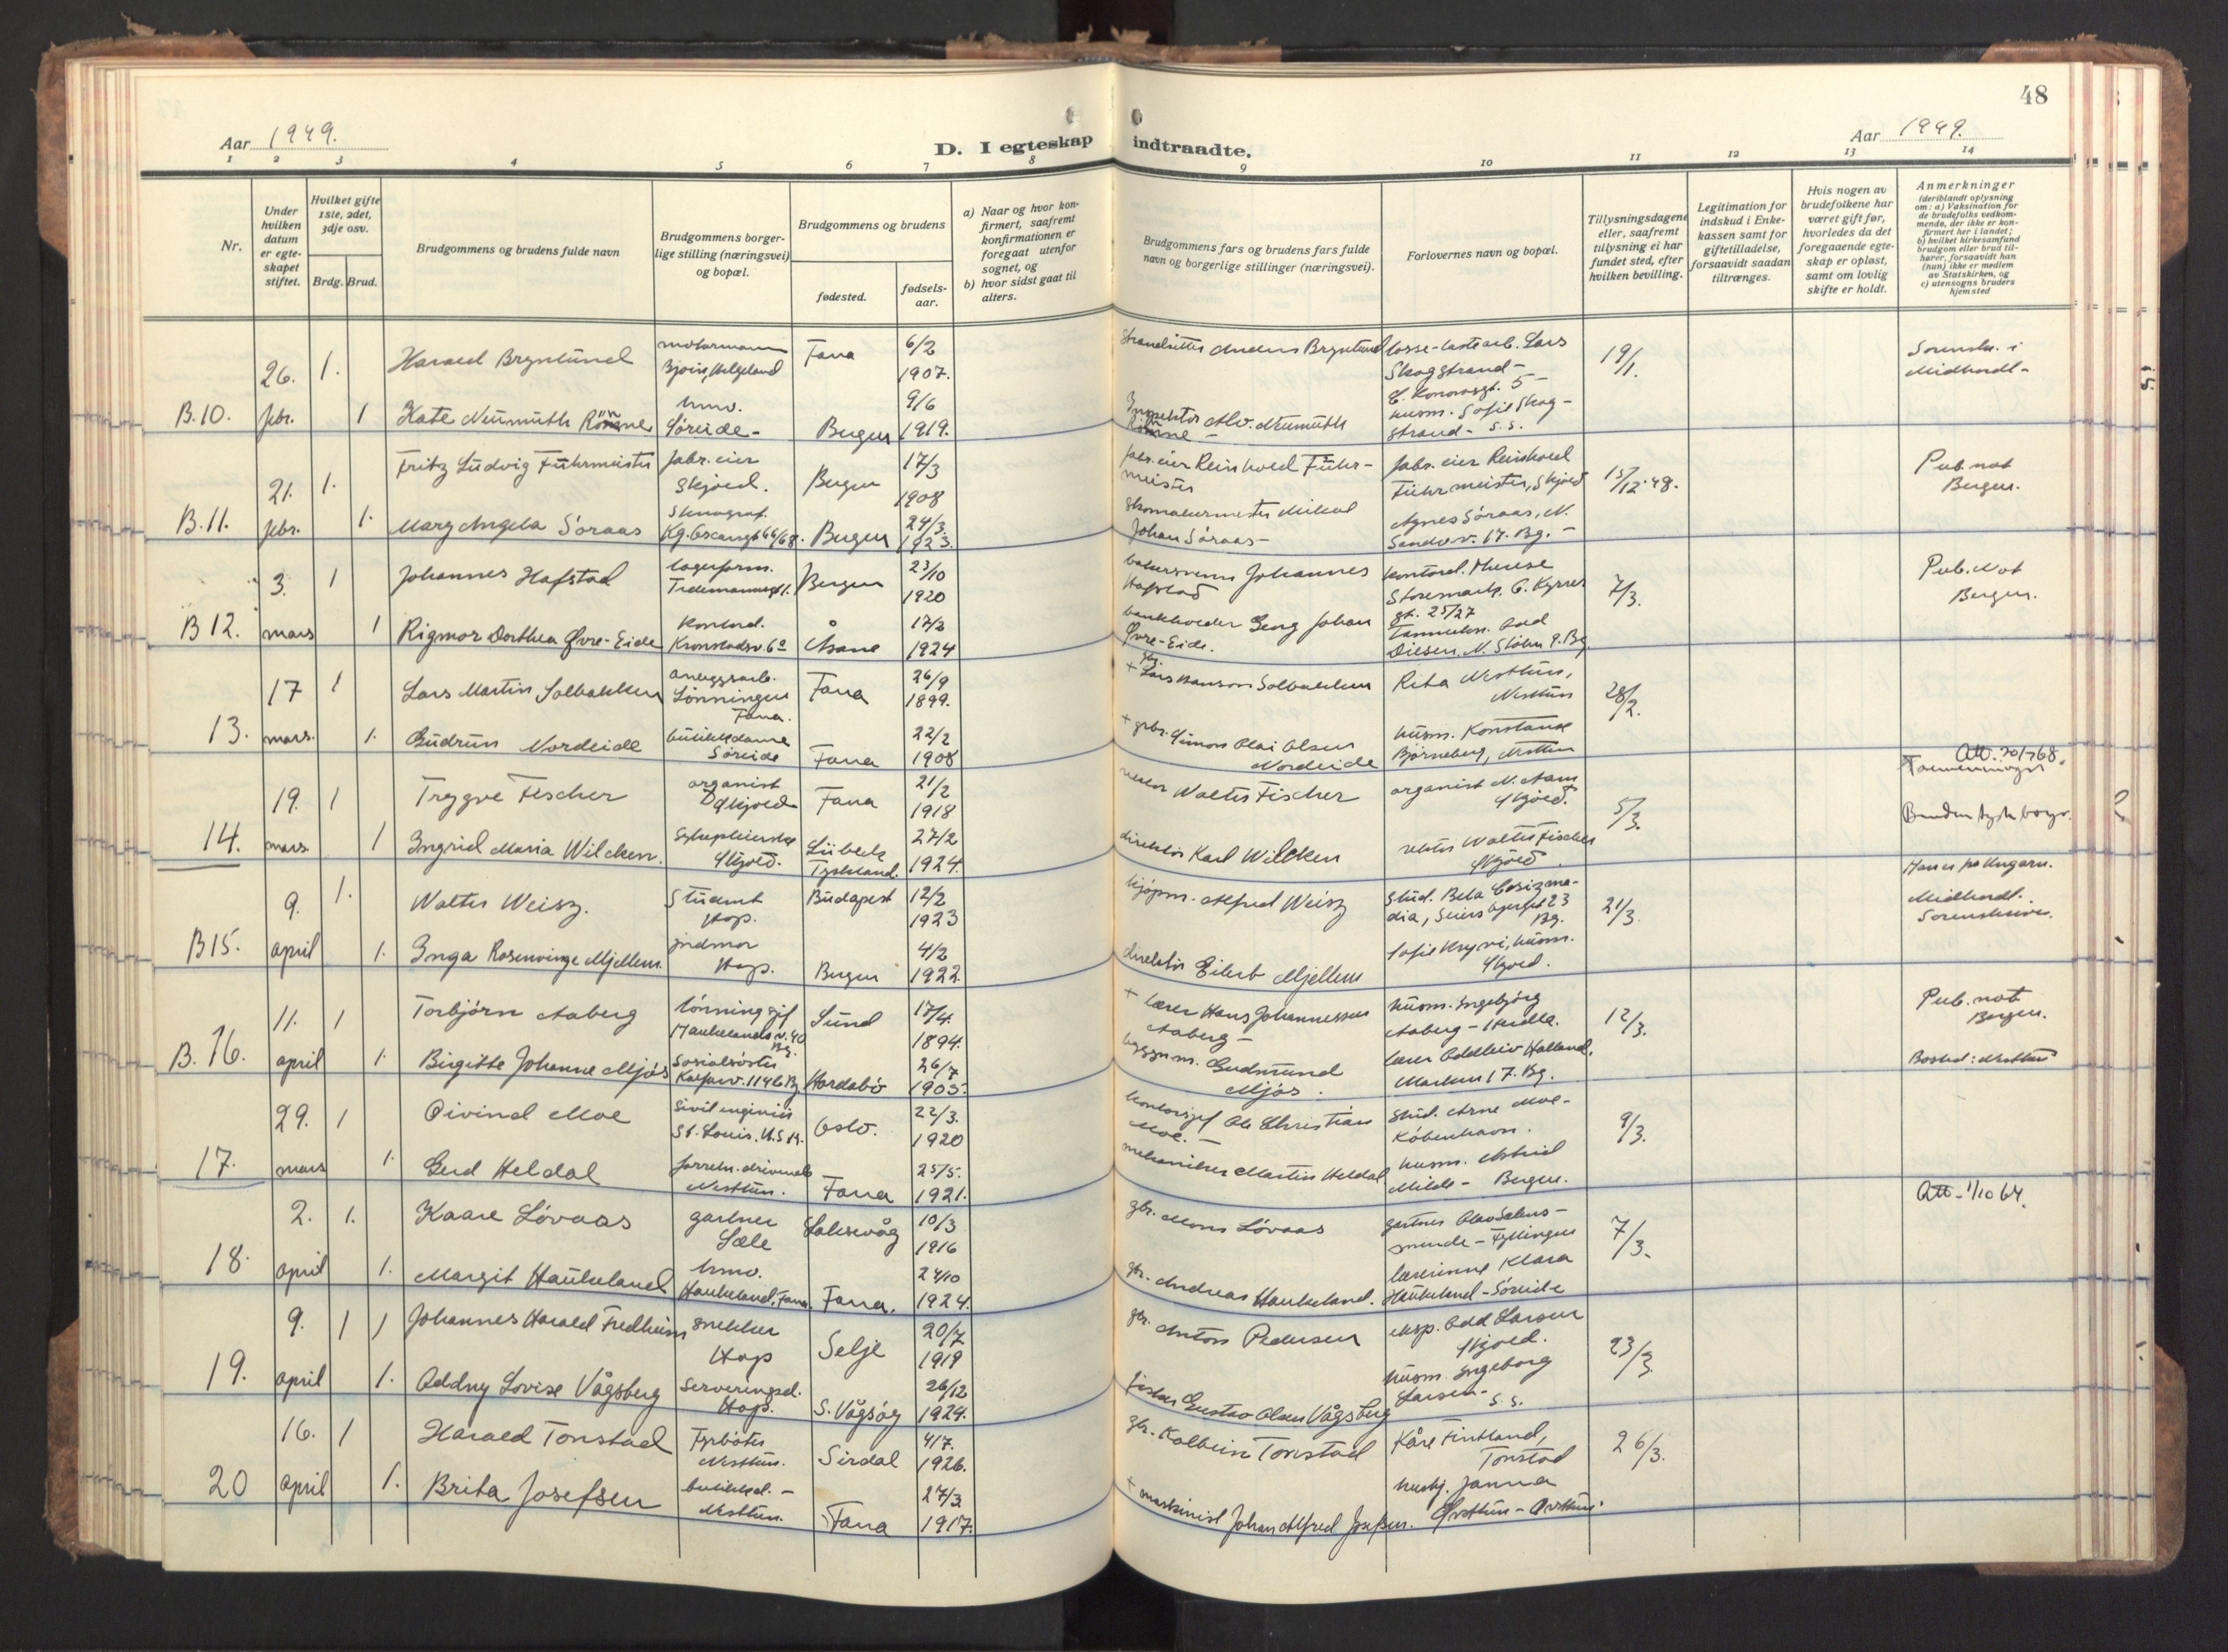 48
Aar 1949.
D. I egteskap indtraadte.
Aar 1949.
1 2 3 4 5 6 7 8 9 10 11 12 13 14
Nr.
Under hvilken datum er egteskapet stiftet.
Hvilket gifte 1ste, 2det, 3dje osv.
Brdg. Brud.
Brudgommens og brudens fulde navn
Brudgommens borgerlige stilling (næringsvei) og bopæl.
Brudgommens og brudens
fødested.
fødselsaar.
a) Naar og hvor konfirmert, saafremt konfirmationen er foregaat utenfor sognet, og
b) hvor sidst gaat til alters.
Brudgommens fars og brudens fars fulde navn og borgerlige stillinger (næringsvei).
Forlovernes navn og bopæl.
Tillysningsdagene eller, saafremt tillysning ei har fundet sted, efter hvilken bevilling.
Legitimation for indskud i Enkekassen samt for giftetilladelse, forsaavidt saadan tiltrænges.
Hvis nogen av brudefolkene har været gift før, hvorledes da det foregaaende egteskap er opløst, samt om lovlig skifte er holdt.
Anmerkninger (deriblandt oplysning om: a) Vaksination for de brudefolks vedkommende, der ikke er konfirmert her i landet; b) hvilket kirkesamfund brudgom eller brud tilhører, forsaavidt han (hun) ikke er medlem av Statskirken, og c) utensogns bruders hjemsted
26. 1. Harald Bryntund motormann Fana 6/2 1907. Anders Bryntund Lars Skogstrand - 19/1. Sorenskr. i Midhordl-
B.10. febr. 1 Kate Neumüth Rönne hmv. Søreide- Bergen 9/6 1919. Alv. Neumüth Rönne - husm. Sofie Skogstrand - s.s.
21. 1. Fritz Ludvig Führmeister fabr. eier Skjold. Bergen 17/3 1908 fabr. eier Reinhold Führmeister fabr. eier Reinhold Führmeister, Skjold 15/12.48. Pub. not Bergen.
B.11. febr. 1. Mary Angela Söraas Bergen 24/3 1923. skomakermester Mikal Johan Söraas- Agnes Söraas, N. Sandsv. 17. Bg. -
3. 1 Johannes Hafstad lagerform. Bergen 23/10 1920 Johannes Hafstad kontord. Therese 7/3. Pub. Not Bergen.
B 12. mars 1 Rigmor Dorthea Øvre-Eide kontord. Kronstadsv. 6a Åsane 12/2 1924 Georg Johan Øvre-Eide.
17 1 Lars Martin Solbakken anleggsarb. Lönningen Fana. Fana 26/9 1899. + gbr. Lars Hanson Solbakken Rita Nesttun, Nesttun 28/2.
13. mars. 1. Gudrun Nordeide butikkdame Søreide Fana 22/2 1908 + gbr. Simon Olai Olsen Nordeide husm. Konstanse Bjørneberg, Nesttun
19. 1 Trygve Fischer organist Skjold Fana 21/2 1918 rektor Walter Fischer organist N. Aam Skjold. 5/3. Att. 20/7 68.
14. mars 1 Ingrid Maria Wilcken. Sykepleierske Skjold. Lübeck Tyskland. 27/2 1924. direktör Karl Wilcken rektor Walter Fischer Skjold. Bruden tysk borger.
9. 1. Walter Weisz. Student Hop. Budapest 12/2 1923 kjøpm. Alfred Weisz Stud. Bela 21/3. Han er fra Ungarn.
B 15. april 1. Inga Rosenvinge Mjellem. Hop. Bergen 4/2 1922. direktør Eilert Mjellem Sofie Kryvi, husm. Skjold. Midhordl. Sorenskriver.
11. 1 Torbjörn Aaberg Haukelandsv. 40 Bg. Sund 17/4. 1894. + lærer Hans Johannessen Aaberg - husm. Ingebjörg Aaberg - Herdla. 12/3. Pub. not Bergen.
B. 16. april 1. Birgitte Johanne Mjös Sosialsöster Kalfarv. 114 b Bg Hordabö 26/7 1905. byggm. Gudmund Mjös. lærer Oddleiv Halland, Marken 17. Bg. Bosted: Nesttun
29. 1 Öivind Moe Sivilingeniör St. Louis. U.S.A. Oslo. 22/3. 1920 kontorsjef Ole Christian Moe. - Stud. Arne Moe - København. 9/3.
17. mars 1. Gerd Heldal forretn. drivende Nesttun. Fana 25/5. 1921. mekaniker Martin Heldal husm. Astrid Milde - Bergen.
2. 1. Kaare Lövaas gartner Sæle Laksevåg 10/3 1916 gbr. Mons Lövaas gartner Olav - Fyllingen 7/3. Att - 1/10 64.
18. april 1. Margit Haukeland hmv. Haukeland, Fana. Fana. 24/10 1924. gbr. Andreas Haukeland. lærerinne Klara Haukeland - Søreide
9. 1 1 Johannes Harald Fredheim snekker Hop Selje 20/7 1919 gbr. Anton Pedersen eksp. Odd Larsen Skjold. 23/3.
19. april 1. Oddny Lovise Vågsberg Serveringsd. Hop. S. Vågsøy 26/12 1924. fisker Gustav Olsen Vågsberg husm. Ingeborg Larsen - s. s.
16. 1 Harald Tonstad Fyrböter Nesttun. Sirdal 4/7. 1926. gbr. Kolbein Tonstad Kåre Fintland, Tonstad 26/3.
20 april 1. Brita Josefsen butikkd. - Nesttun. Fana 27/3 1917. + maskinist Johan Alfred Josefsen. Janna Øvsttun - Øvsttun.